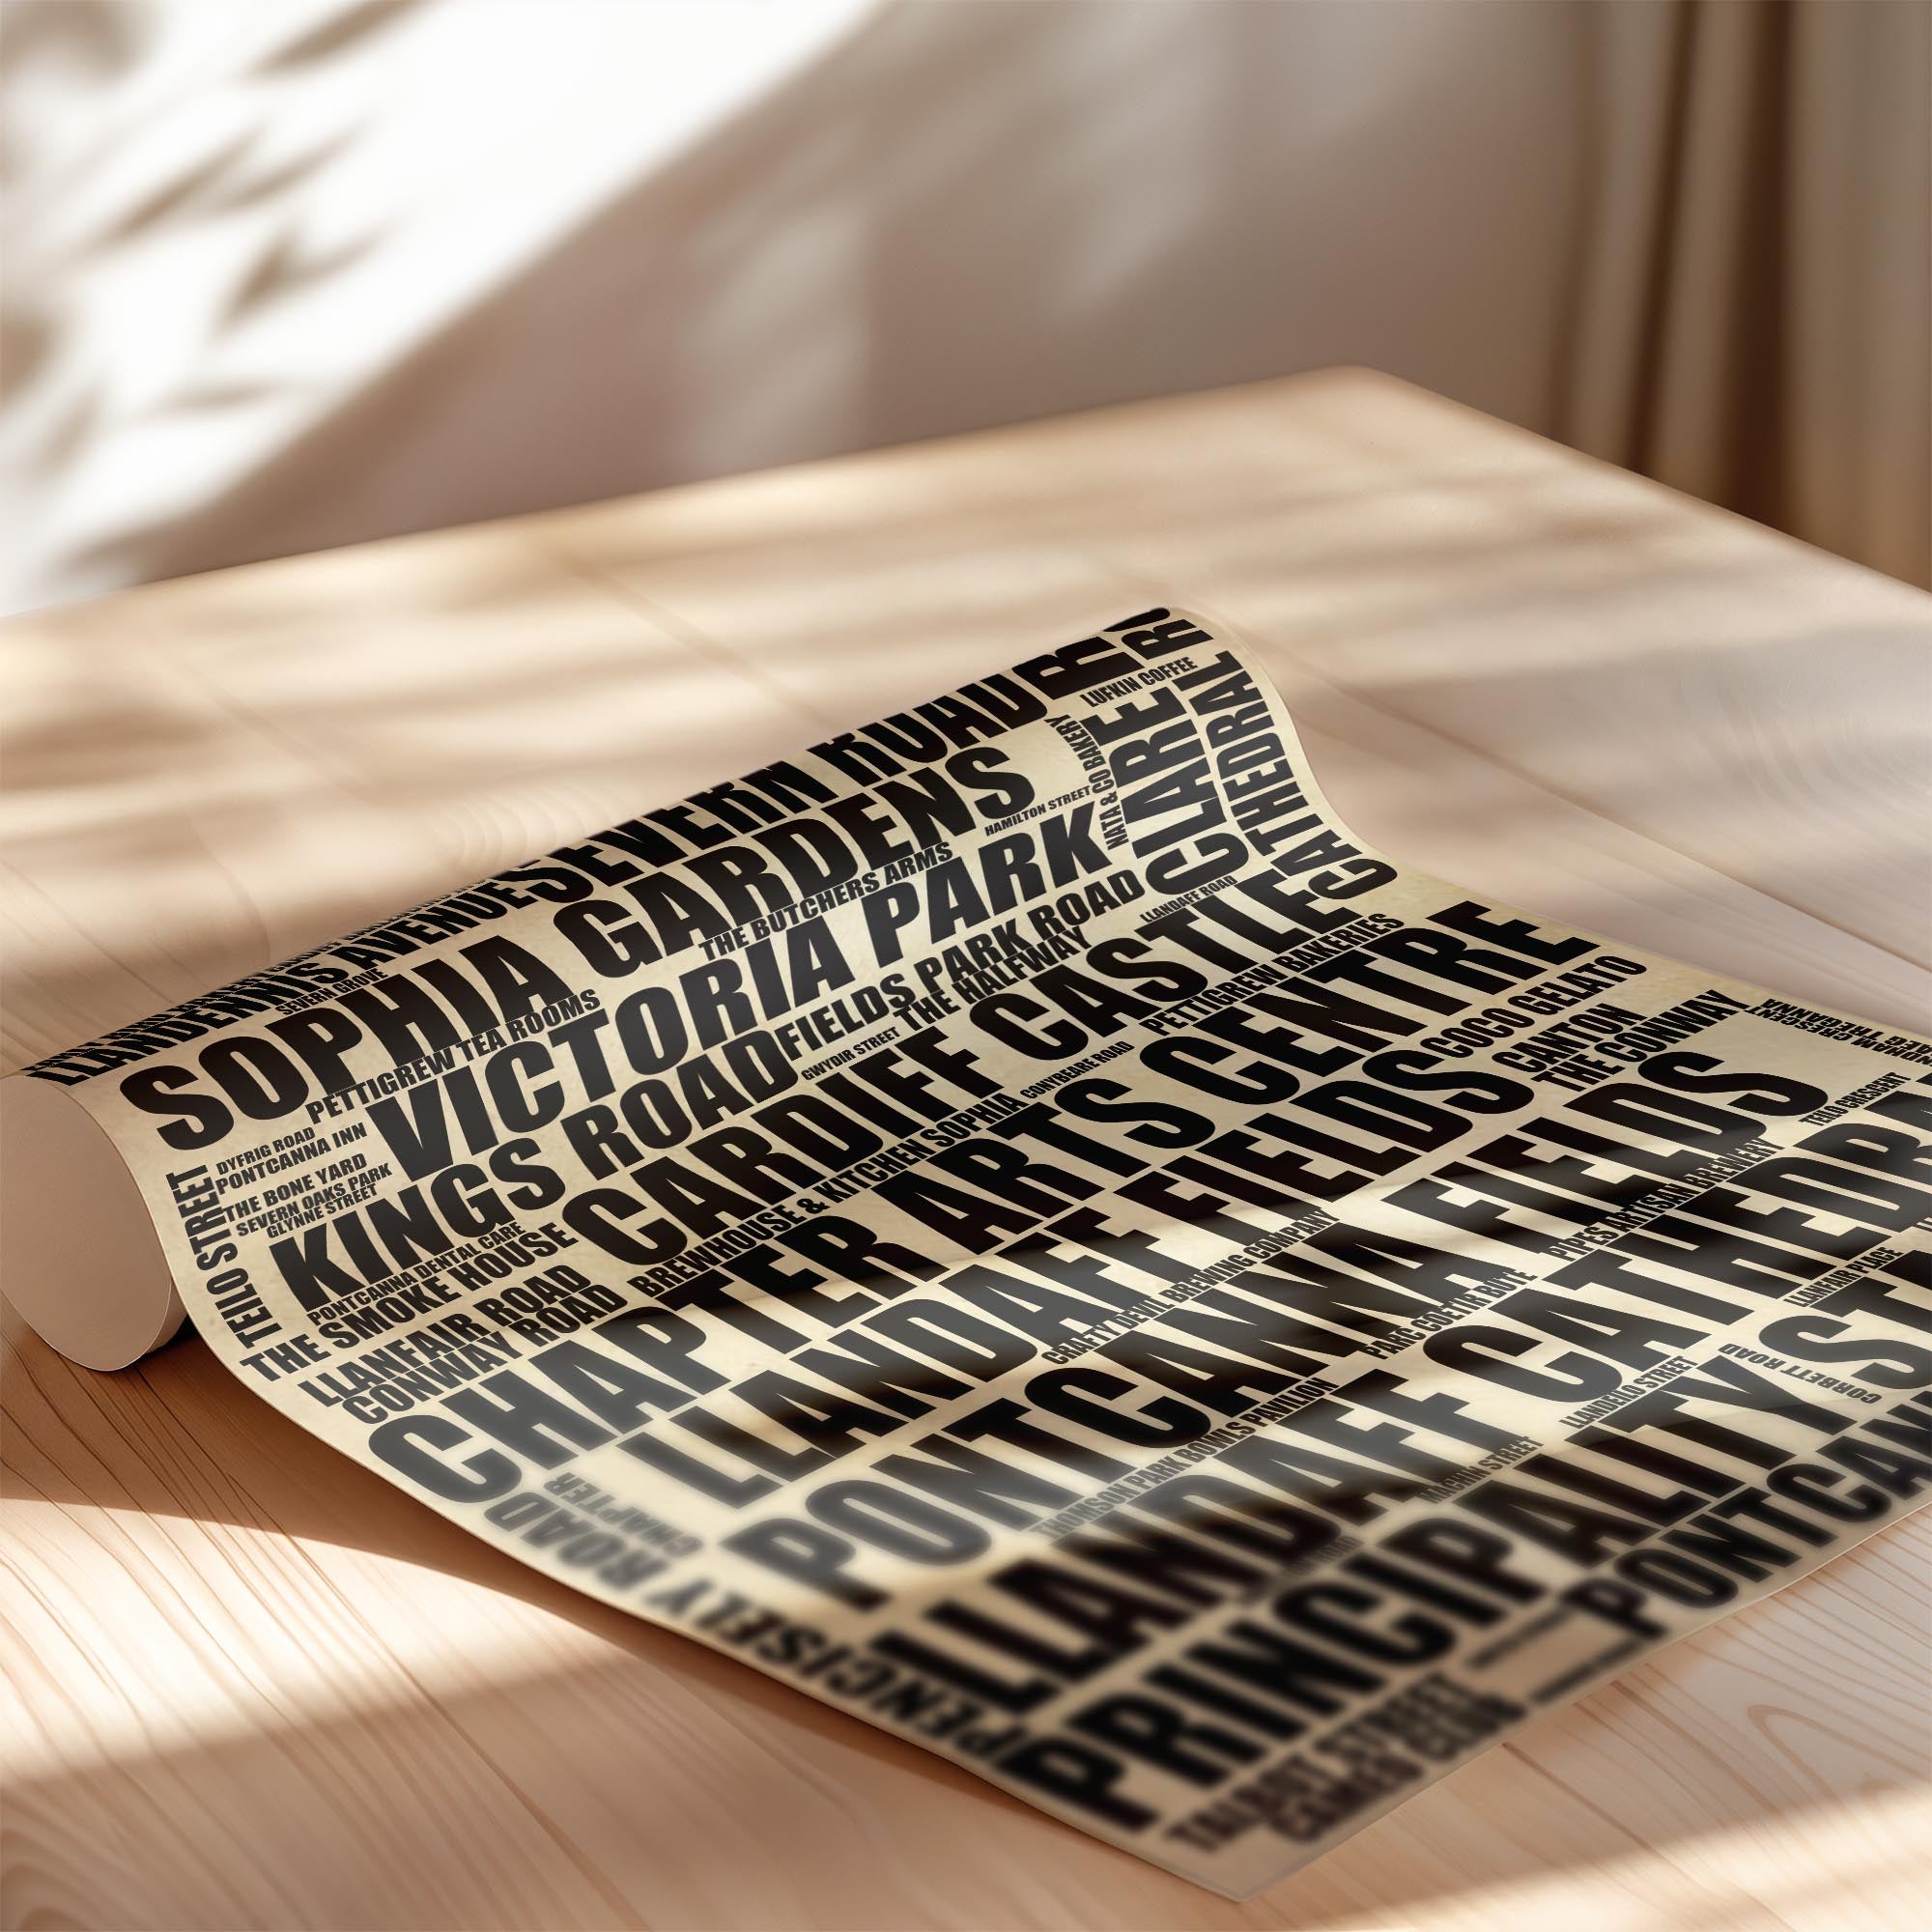 LLANDENNIS AVENUE
SEVERN ROAD
SEVERN GROVE
SOPHIA GARDENS
LUFKIN COFFEE
NATA & CO BAKERY
CLARE
CATHEDRAL
HAMILTON STREET
THE BUTCHERS ARMS
PETTIGREW TEA ROOMS
VICTORIA PARK
DYFRIG ROAD
PONTCANNA INN
THE BONE YARD
SEVERN OAKS PARK
GLYNNE STREET
TEILO STREET
KINGS ROAD
FIELDS PARK ROAD
THE HALFWAY
GWYDIR STREET
LLANDAFF ROAD
PONTCANNA DENTAL CARE
THE SMOKE HOUSE
CARDIFF CASTLE
PETTIGREW BAKERIES
LLANFAIR ROAD
CONWAY ROAD
BREWHOUSE & KITCHEN SOPHIA
CONYBEARE ROAD
CHAPTER ARTS CENTRE
COCO GELATO
CANTON
THE CONWAY
LLANDAFF FIELDS
CRAFTY DEVIL BREWING COMPANY
PONTCANNA FIELDS
TEILO CRESCENT
PIPES ARTISAN BREWERY
PARC COETIR BUTE
CHAPTER
PENCISELY ROAD
THOMSON PARK BOWLS PAVILION
LLANDAFF CATHEDRA
LLANFAIR PLACE
MACHIN STREET
LLANDEILO STREET
CORBETT ROAD
PRINCIPALITY ST
PONTCAN
TALBOT STREET